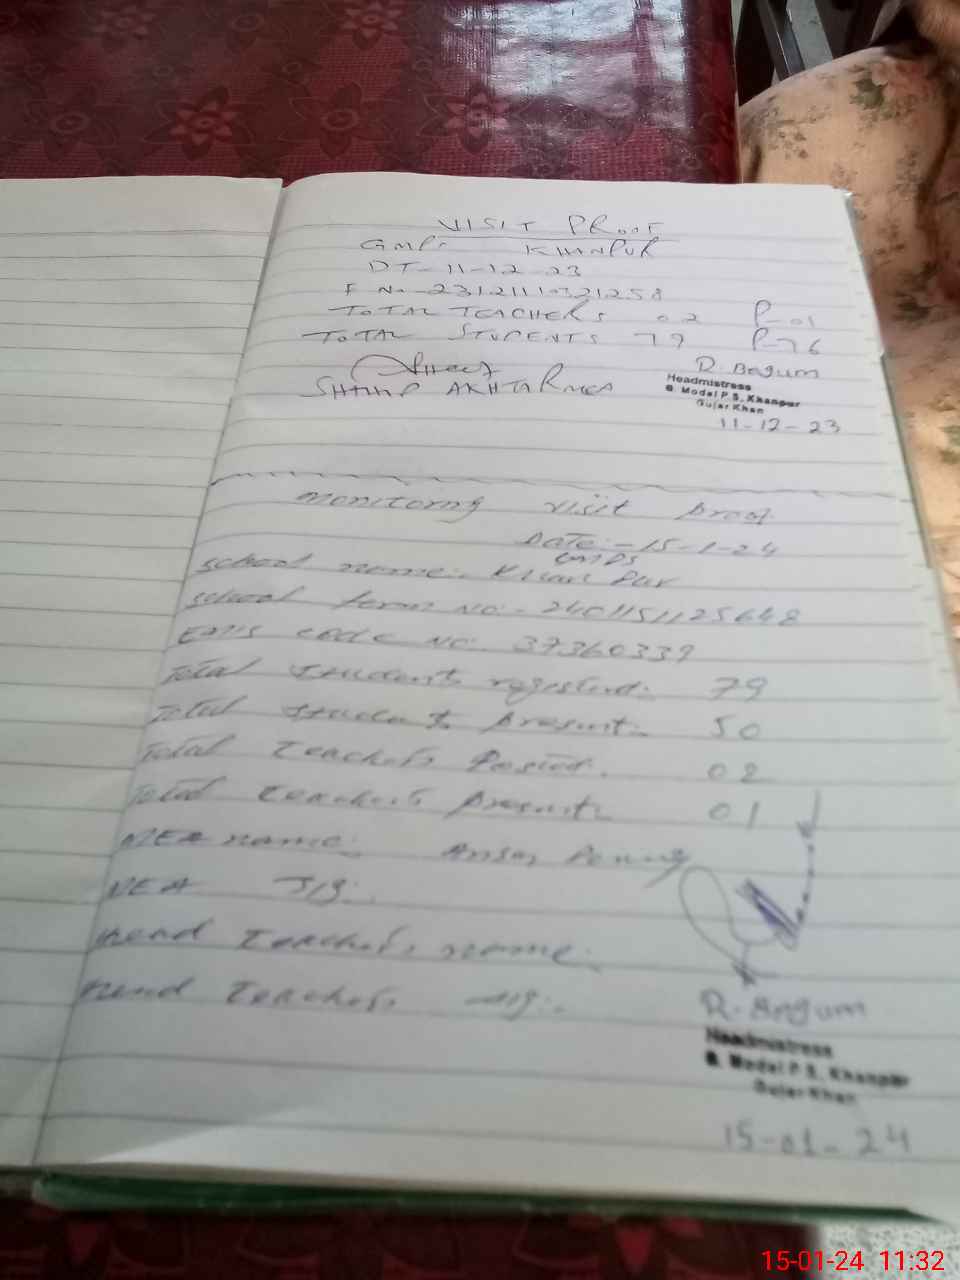 VISIT PROOF
GMPS KHANPUR
DT-11-12-23
F No-23121110321258
TOTAL TEACHERS 02 P-01
TOTAL STUDENTS 79 P-76
R. Begum
SHAHID AKHTAR MEA
Headmistress
G. Model P.S, Khanpur
Gujar Khan
11-12-23
monitorng visit proof
Date:-15-1-24
GMPS
school name:- Khan Pur
school form NO:- 2401151125648
EMIS code NO: 37360339
Total students 79
Total students present: 50
Total teachers 02
Total teachers present: 01
MEA name:
MEA sig:
Head teachers name:
Head teachers sig:-
R. Begum
Headmistress
G. Model P.S, Khanpur
Gujar Khan
15-01-24
15-01-24 11:32